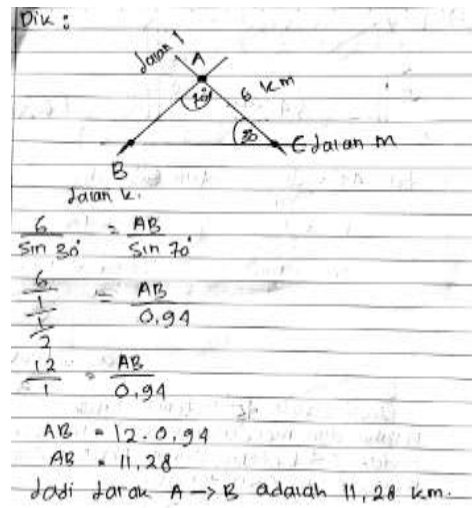 Dik :
Jalan 1
A
70°
6 km
30
C Jalan m
B
Jalan k.
6 / sin 30° = AB / sin 70°
6 / 1/2 = AB / 0,94
12 / 1 = AB / 0,94
AB = 12 . 0,94
AB = 11,28
Jadi Jarak A → B adalah 11,28 km.